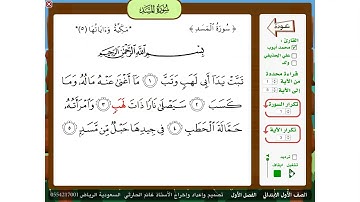 سُورَةُ المَسَدِ
عودة
﴿ سُورَةُ الْمَسَدِ ﴾
مَكِّيَّةٌ وَءَايَاتُهَا (٥)
القارئ :
محمد أيوب
علي الحذيفي
ولد
بِسْمِ اللَّهِ الرَّحْمَٰنِ الرَّحِيمِ
قراءة محددة
من الآية
إلى الآية
تَبَّتْ يَدَا أَبِي لَهَبٍ وَتَبَّ ١ مَا أَغْنَىٰ عَنْهُ مَالُهُ وَمَا
كَسَبَ ٢ سَيَصْلَىٰ نَارًا ذَاتَ لَهَبٍ ٣ وَامْرَأَتُهُ
حَمَّالَةَ الْحَطَبِ ٤ فِي جِيدِهَا حَبْلٌ مِّن مَّسَدٍ ٥
تكرار السورة
تكرار الآية
ترديد
تشغيل
إيقاف
الصف الأول الابتدائي
الفصل الأول
تصميم وإعداد وإخراج الأستاذ غانم الحارثي
السعودية الرياض 0554217001